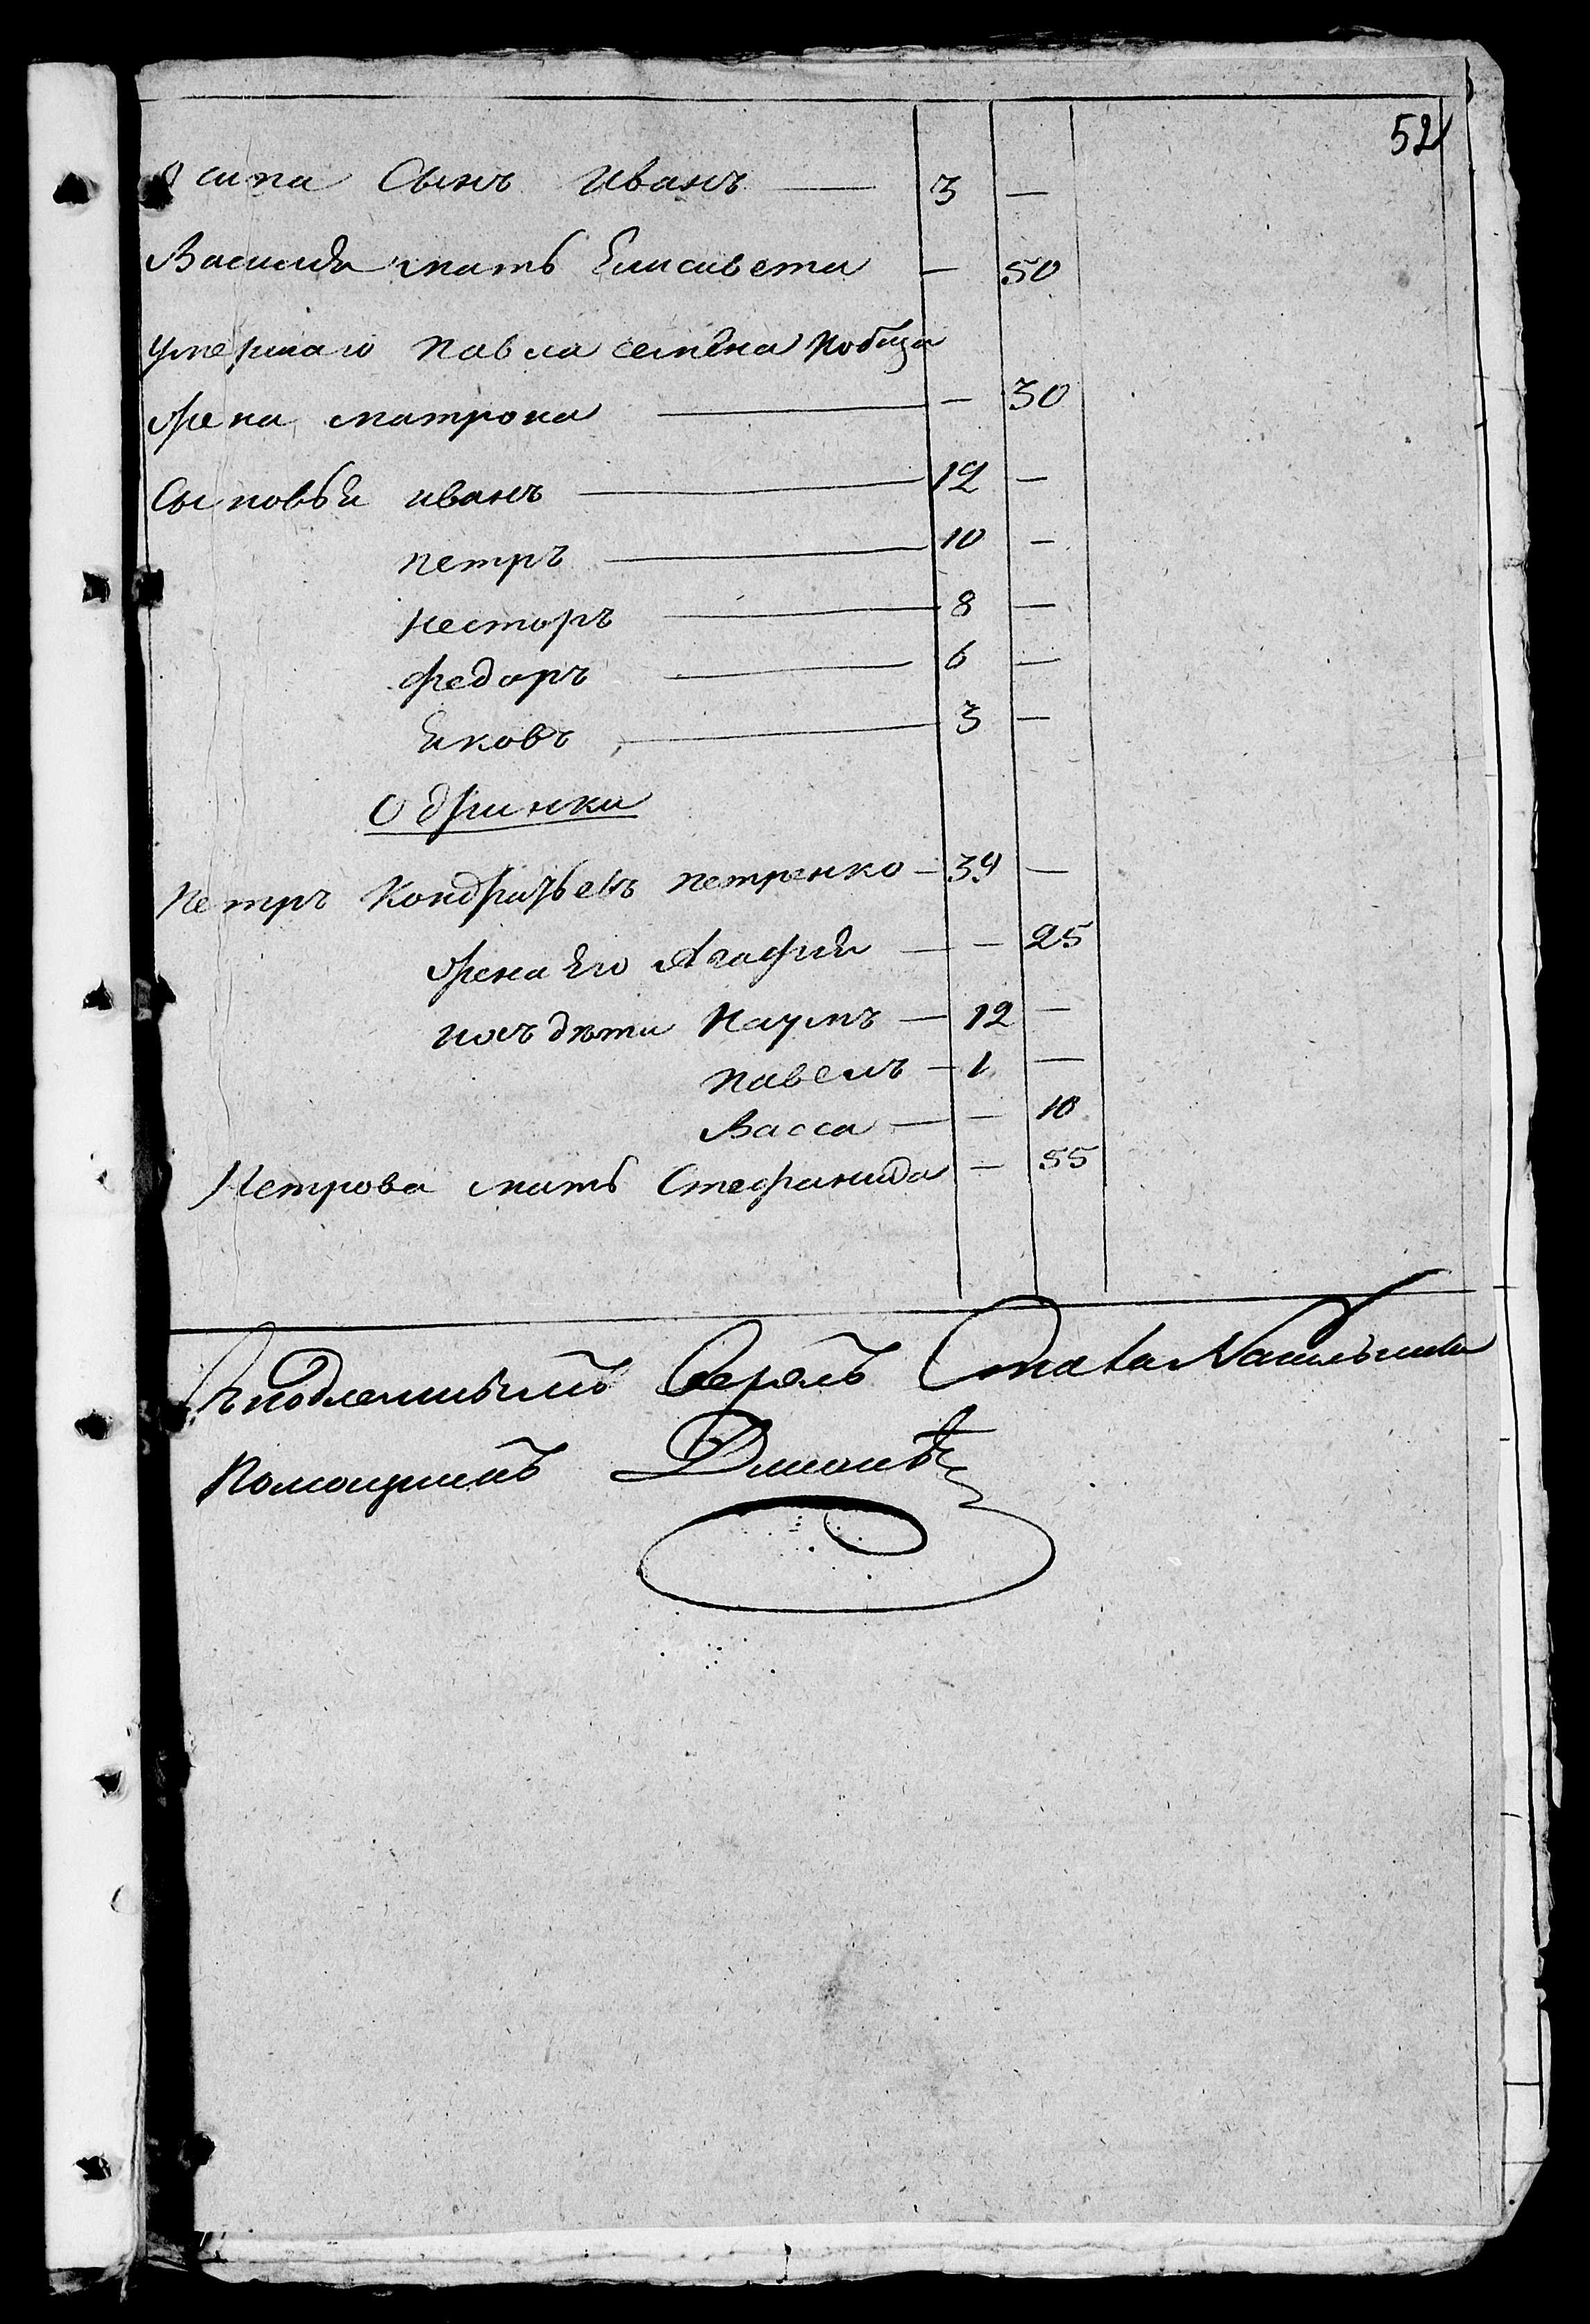 52
Осипа Сынъ Иванъ — 3 —
Василія мать Елисавета — 50
умершаго Павла семена Кобца
жена матрона — — 30
Сыновья иванъ — 12 —
петръ — 10 —
несторъ — 8 —
федоръ — 6 —
Яковъ — 3 —
Одринки
Петръ Кондратьевъ петренко — 39 —
жена Его Агафия — — 25
ихъ дѣти Наумъ — 12 —
павелъ — 1 —
Васса — — 10
Петрова мать Стефанида — 55
Съ подлиннымъ верно
Помощникъ